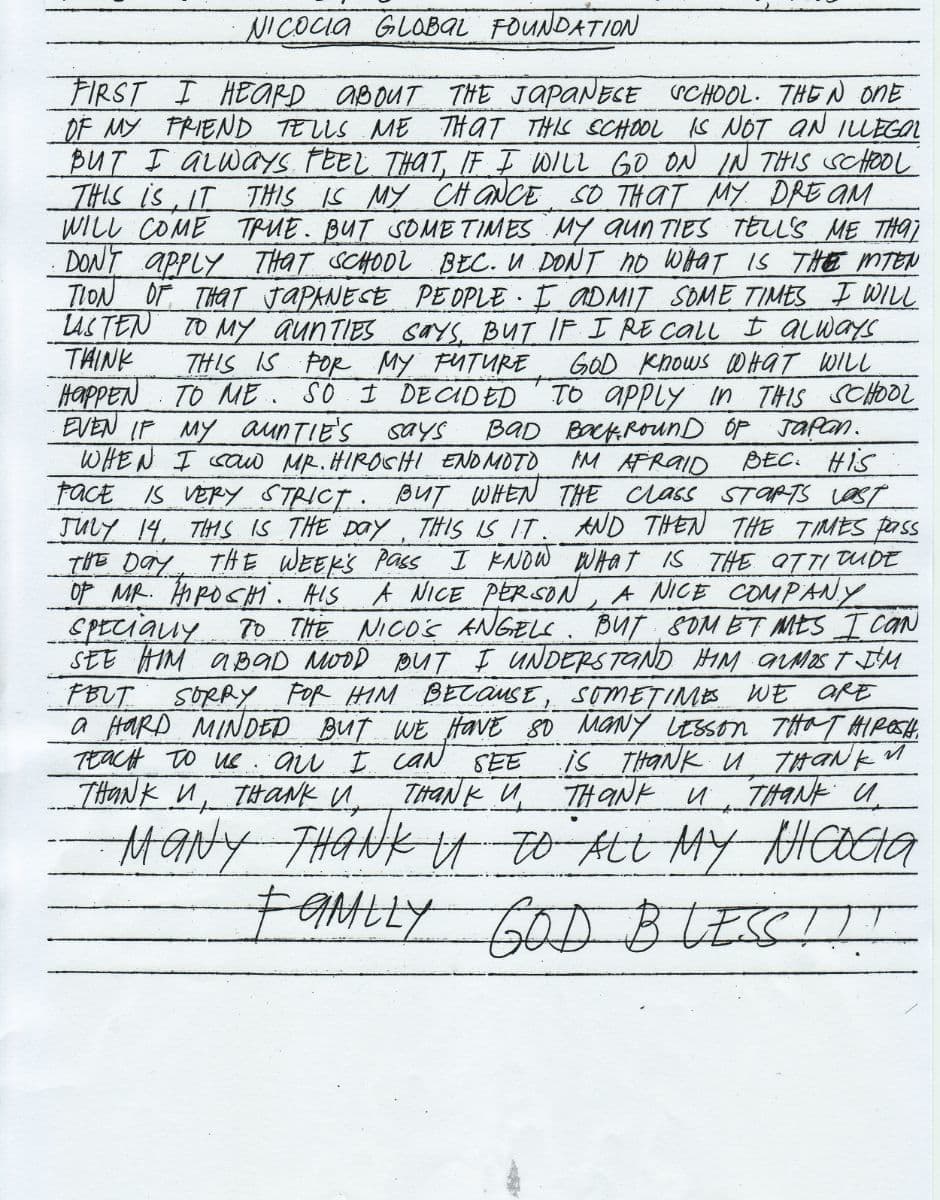 NICOCIA GLOBAL FOUNDATION
FIRST I HEARD ABOUT THE JAPANESE SCHOOL. THEN ONE
OF MY FRIEND TELLS ME THAT THIS SCHOOL IS NOT AN ILLEGAL
BUT I ALWAYS FEEL THAT, IF I WILL GO ON IN THIS SCHOOL
THIS IS, IT THIS IS MY CHANCE, SO THAT MY DREAM
WILL COME TRUE. BUT SOMETIMES MY AUNTIES TELL'S ME THAT
DON'T APPLY THAT SCHOOL BEC. U DONT NO WHAT IS THE INTEN
TION OF THAT JAPANESE PEOPLE. I ADMIT SOMETIMES I WILL
LISTEN TO MY AUNTIES SAYS, BUT IF I RECALL I ALWAYS
THINK THIS IS FOR MY FUTURE, GOD KNOWS WHAT WILL
HAPPEN TO ME. SO I DECIDED TO APPLY IN THIS SCHOOL
EVEN IF MY AUNTIE'S SAYS BAD BACKROUND OF JAPAN.
WHEN I SAW MR. HIROSHI ENOMOTO I'M AFRAID BEC. HIS
FACE IS VERY STRICT. BUT WHEN THE CLASS STARTS LAST
JULY 14, THIS IS THE DAY, THIS IS IT. AND THEN THE TIMES PASS
THE DAY, THE WEEK'S PASS I KNOW WHAT IS THE ATTITUDE
OF MR. HIROSHI. HIS A NICE PERSON, A NICE COMPANY
SPECIALLY TO THE NICO'S ANGELS. BUT SOMETIMES I CAN
SEE HIM A BAD MOOD BUT I UNDERSTAND HIM ALMOST I'M
FELT SORRY FOR HIM BECAUSE, SOMETIMES WE ARE
A HARD MINDED BUT WE HAVE SO MANY LESSON THAT HIROSHI
TEACH TO US. ALL I CAN SEE IS THANK U, THANK U
THANK U, THANK U, THANK U, THANK U, THANK U,
MANY THANK U TO ALL MY NICOCIA
FAMILLY GOD BLESS!!!